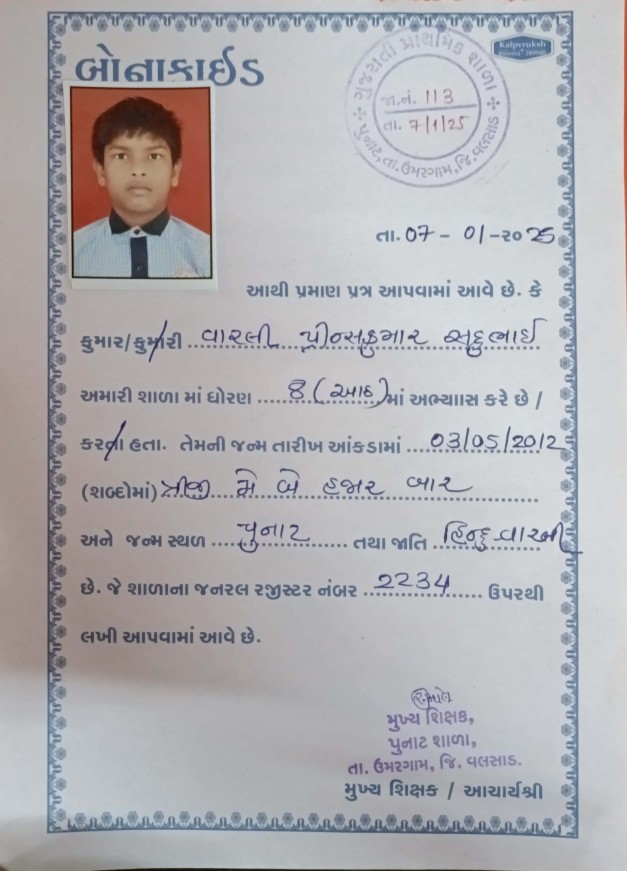 બોનાકાઈડ
Kalpvruksh
ગુજરાતી પ્રાથમિક શાળા
જા.નં. 113
તા. 7/1/25
પુનાટ, તા. ઉમરગામ, જિ. વલસાડ
તા. 07 - 01 - ૨૦ 25
આથી પ્રમાણ પત્ર આપવામાં આવે છે. કે
કુમાર/કુમારી વારલી પ્રીન્સકુમાર સદુભાઈ
અમારી શાળા માં ધોરણ 8 (આઠ) માં અભ્યાસ કરે છે /
કરતા હતા. તેમની જન્મ તારીખ આંકડામાં 03/05/2012
(શબ્દોમાં) ત્રીજી મે બે હજાર બાર
અને જન્મ સ્થળ પુનાટ તથા જાતિ હિન્દુ વારલી
છે. જે શાળાના જનરલ રજીસ્ટર નંબર 2234 ઉપરથી
લખી આપવામાં આવે છે.
મુખ્ય શિક્ષક,
પુનાટ શાળા,
તા. ઉમરગામ, જિ. વલસાડ.
મુખ્ય શિક્ષક / આચાર્યશ્રી